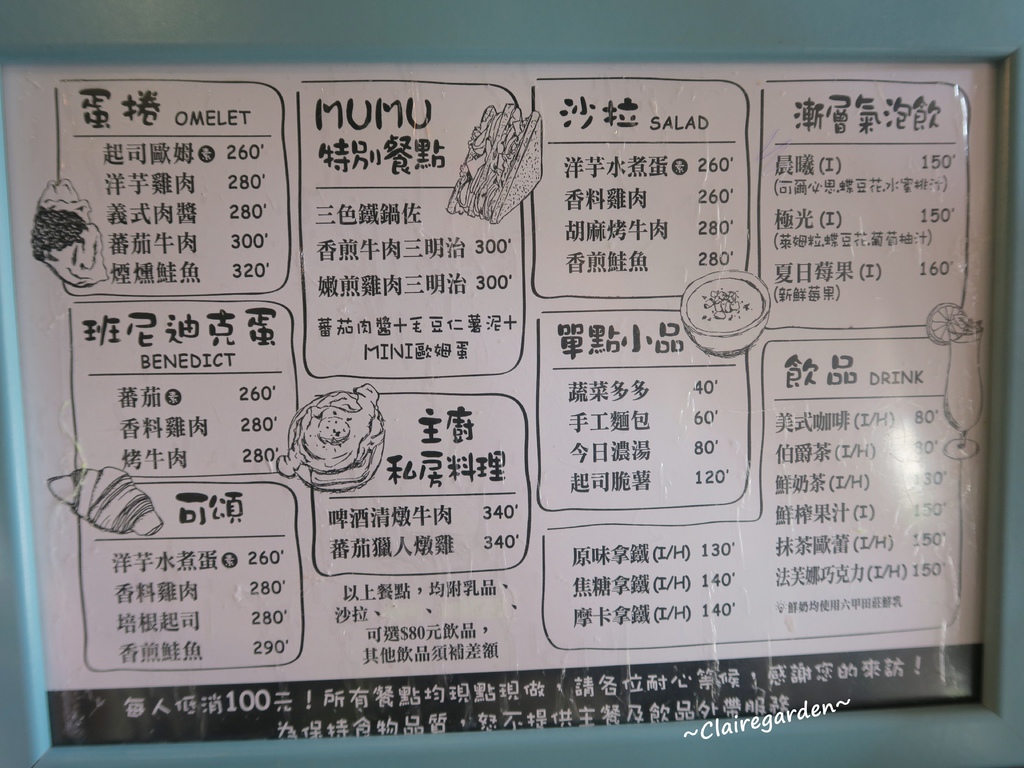 蛋捲 OMELET
起司歐姆素 260'
洋芋雞肉 280'
義式肉醬 280'
蕃茄牛肉 300'
煙燻鮭魚 320'
班尼迪克蛋
BENEDICT
蕃茄素 260'
香料雞肉 280'
烤牛肉 280'
可頌
洋芋水煮蛋素 260'
香料雞肉 280'
培根起司 280'
香煎鮭魚 290'
MUMU
特別餐點
三色鐵鍋佐
香煎牛肉三明治 300'
嫩煎雞肉三明治 300'
蕃茄肉醬+毛豆仁薯泥+
MINI歐姆蛋
主廚
私房料理
啤酒清燉牛肉 340'
蕃茄獵人燉雞 340'
以上餐點，均附乳品、
沙拉、 、 、
可選$80元飲品，
其他飲品須補差額
沙拉 SALAD
洋芋水煮蛋素 260'
香料雞肉 260'
胡麻烤牛肉 280'
香煎鮭魚 280'
單點小品
蔬菜多多 40'
手工麵包 60'
今日濃湯 80'
起司脆薯 120'
原味拿鐵(I/H) 130'
焦糖拿鐵(I/H) 140'
摩卡拿鐵(I/H) 140'
漸層氣泡飲
晨曦(I) 150'
(可爾必思.蝶豆花.水蜜桃汁)
極光(I) 150'
(萊姆粒.蝶豆花.葡萄柚汁)
夏日莓果(I) 160'
(新鮮莓果)
飲品 DRINK
美式咖啡(I/H) 80'
伯爵茶(I/H) 80'
鮮奶茶(I/H) 130'
鮮榨果汁(I) 150'
抹茶歐蕾(I/H) 150'
法芙娜巧克力(I/H) 150'
鮮奶均使用六甲田莊鮮乳
每人低消100元！所有餐點均現點現做，請各位耐心等候！感謝您的來訪！
為保持食物品質，恕不提供主餐及飲品外帶服務
~Clairegarden~